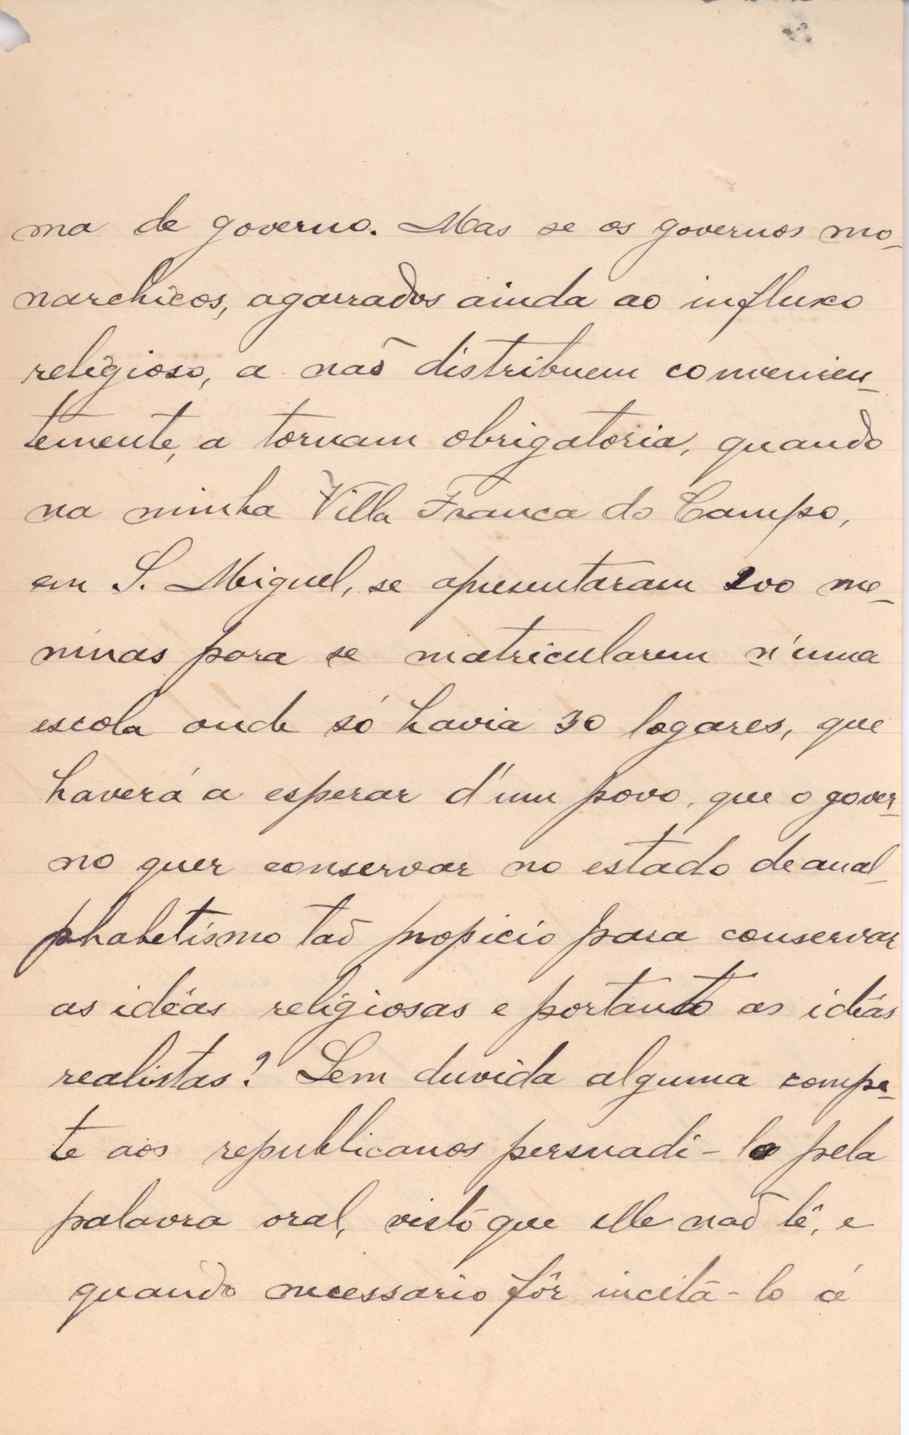 ma de governo. Mas se os governos mo-
narchicos, agarrados ainda ao influxo
religioso, a não distribuem convenien-
temente, a tornam obrigatoria, quando
na minha Villa Franca do Campo,
em S. Miguel, se apresentaram 200 me-
ninas para se matricularem n'uma
escola onde só havia 30 logares, que
haverá a esperar d'um povo, que o gover-
no quer conservar no estado de anal-
phabetismo tão propicio para conservar
as idéas religiosas e portanto as idéas
realistas? Sem duvida alguma compe-
te aos republicanos persuadi-lo pela
palavra oral, visto que elle não lê, e
quando necessario fôr incitá-lo á